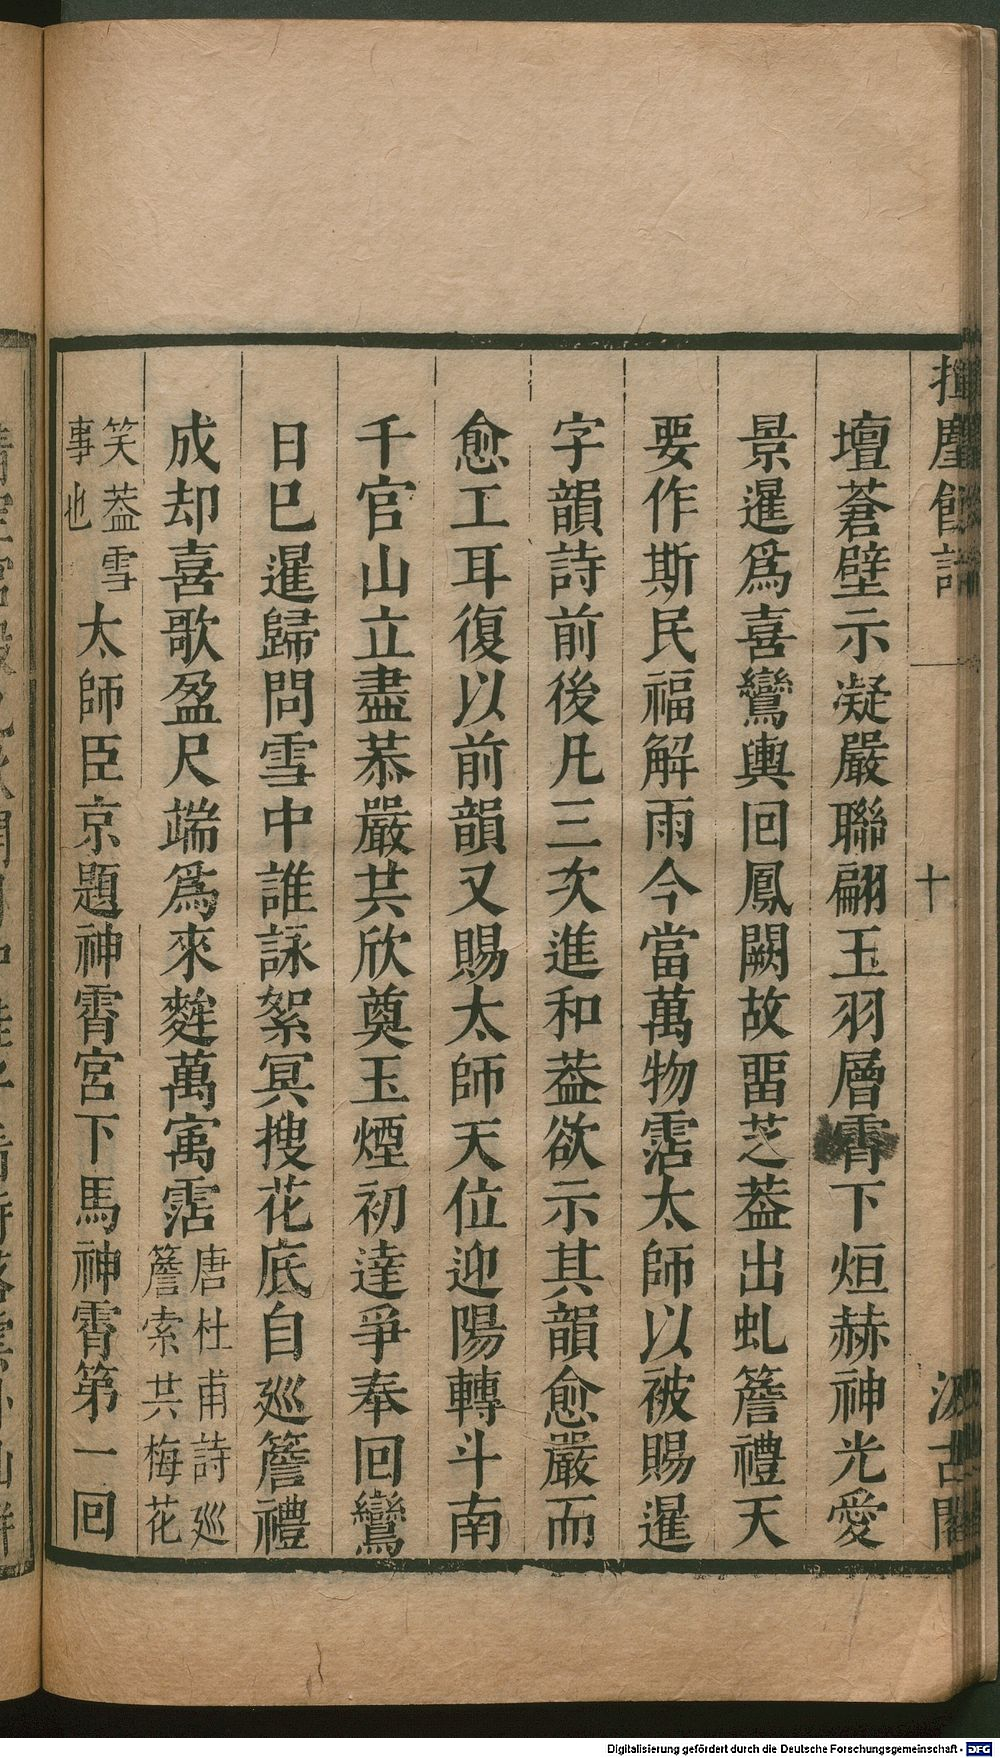 揮麈餘話
十
汲古閣
壇蒼壁示凝嚴聯翩玉羽層霄下烜赫神光愛
景暹爲喜鸞輿回鳳闕故畱芝葢出虬簷禮天
要作斯民福解雨今當萬物霑太師以被賜暹
字韻詩前後凡三次進和葢欲示其韻愈嚴而
愈工耳復以前韻又賜太師天位迎陽轉斗南
千官山立盡恭嚴共欣奠玉煙初達爭奉回鸞
日巳暹歸問雪中誰詠絮冥搜花底自巡簷禮
成却喜歌盈尺端爲來麰萬寓霑唐杜甫詩巡
簷索共梅花
笑葢雪
事也太師臣京題神霄宮下馬神霄第一回
Digitalisierung gefördert durch die Deutsche Forschungsgemeinschaft - DFG